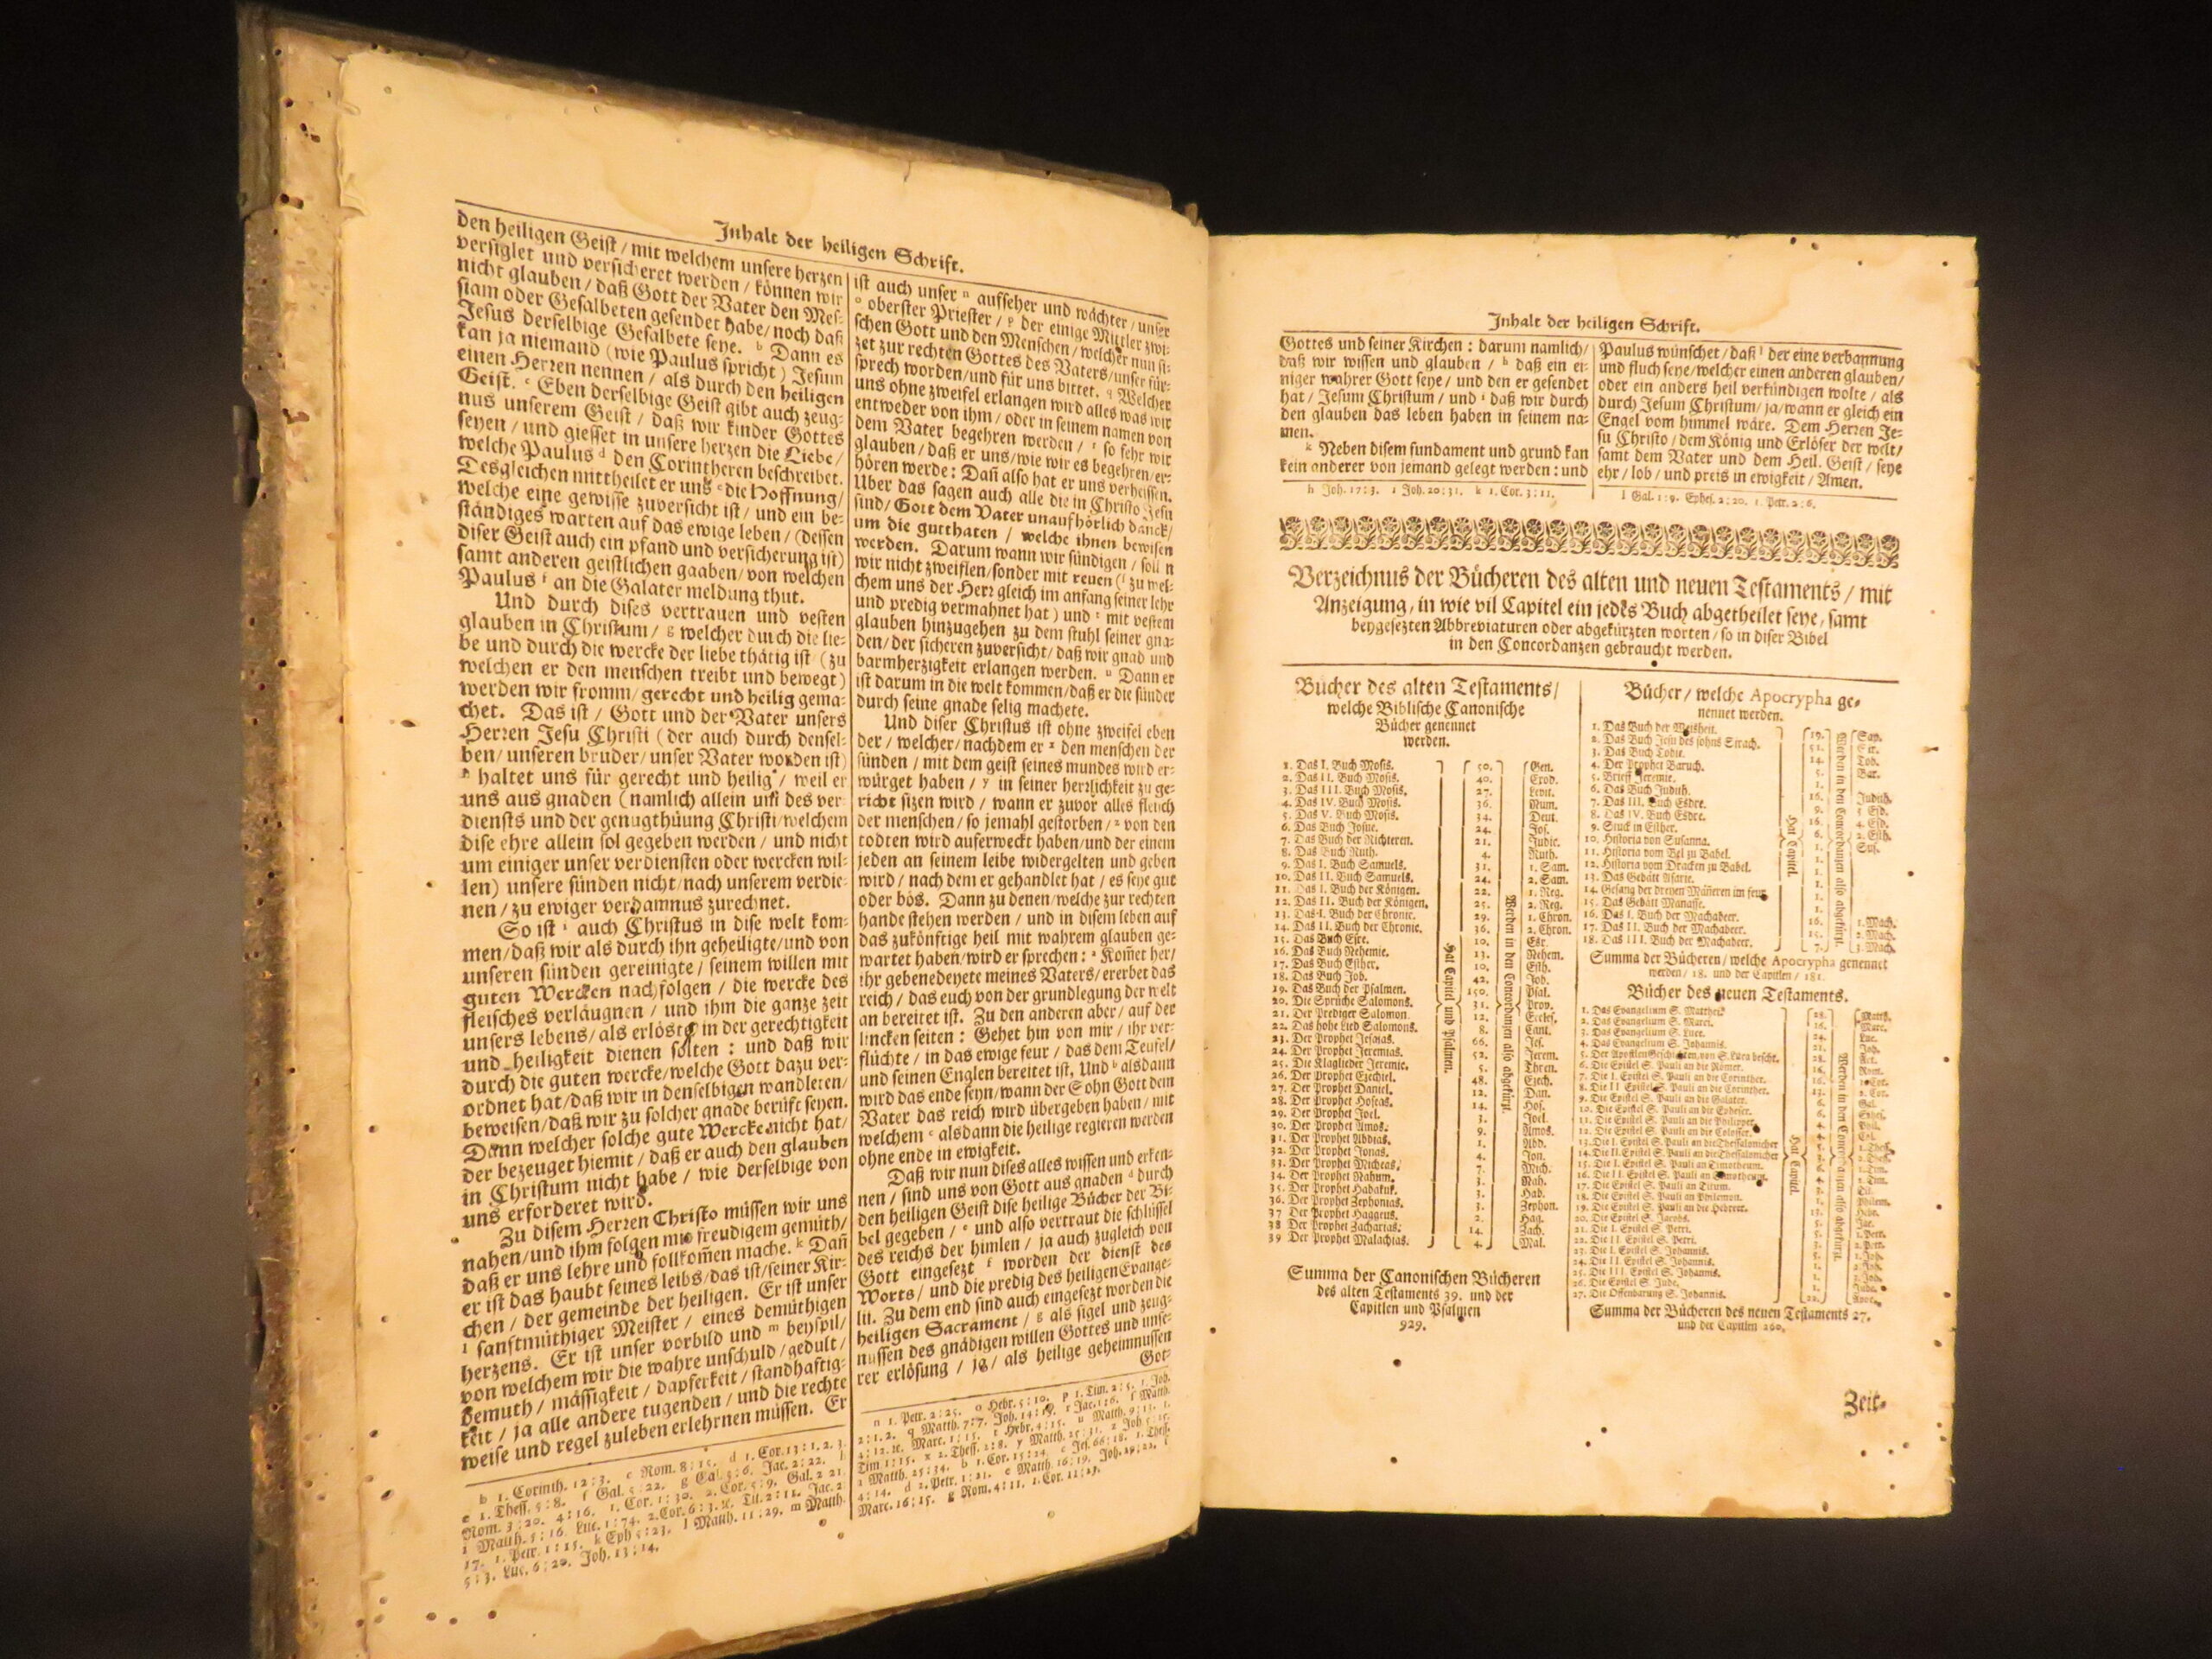 Inhalt der heiligen Schrift.
den heiligen Geist / mit welchem unsere herzen
versiglet und versicheret werden / können wir
nicht glauben / daß Gott der Vater den Mes-
siam oder Gesalbeten gesendet habe / noch daß
Jesus derselbige Gesalbete seye. b Dann es
kan ja niemand (wie Paulus spricht) Jesum
einen Herren nennen / als durch den heiligen
Geist. c Eben derselbige Geist gibt auch zeug-
nus unserem Geist / daß wir kinder Gottes
seyen / und giesset in unsere herzen die Liebe /
welche Paulus d den Corintheren beschreibet.
Desgleichen mittheilet er uns e die Hoffnung /
welche eine gewisse zuversicht ist / und ein be-
ständiges warten auf das ewige leben / (dessen
diser Geist auch ein pfand und versicherung ist)
samt anderen geistlichen gaaben / von welchen
Paulus f an die Galater meldung thut.
Und durch dises vertrauen und vesten
glauben in Christum / g welcher durch die lie-
be und durch die wercke der liebe thätig ist (zu
welchen er den menschen treibt und bewegt)
werden wir fromm / gerecht und heilig gema-
chet. Das ist / Gott und der Vater unsers
Herren Jesu Christi (der auch durch densel-
ben / unseren bruder / unser Vater worden ist)
h haltet uns für gerecht und heilig / weil er
uns aus gnaden (namlich allein um des ver-
diensts und der genugthüung Christi / welchem
dise ehre allein sol gegeben werden / und nicht
um einiger unser verdiensten oder wercken wil-
len) unsere sünden nicht / nach unserem verdie-
nen / zu ewiger verdamnus zurechnet.
So ist i auch Christus in dise welt kom-
men / daß wir als durch ihn geheiligte / und von
unseren sünden gereinigte / seinem willen mit
guten Wercken nachfolgen / die wercke des
fleisches verläugnen / und ihm die ganze zeit
unsers lebens / als erlöste in der gerechtigkeit
und heiligkeit dienen solten : und daß wir
durch die guten wercke / welche Gott dazu ver-
ordnet hat / daß wir in denselbigen wandleten /
beweisen / daß wir zu solcher gnade berüft seyen.
Dann welcher solche gute Wercke nicht hat /
der bezeuget hiemit / daß er auch den glauben
in Christum nicht habe / wie derselbige von
uns erforderet wird.
Zu disem Herren Christo müssen wir uns
nahen / und ihm folgen mit freudigem gemüth /
daß er uns lehre und follkom̃en mache. k Dañ
er ist das haubt seines leibs / das ist / seiner Kir-
chen / der gemeinde der heiligen. Er ist unser
l sanftmüthiger Meister / eines demüthigen
herzens. Er ist unser vorbild und m beyspil /
von welchem wir die wahre unschuld / gedult /
demuth / mässigkeit / dapferkeit / standhaftig-
keit / ja alle andere tugenden / und die rechte
weise und regel zuleben erlehrnen müssen. Er
b 1. Corinth. 12 : 3. c Rom. 8 : 15. d 1. Cor. 13 : 1. 2. 3.
e 1. Thess. 5 : 8. f Gal. 5 : 22. g Gal. 5 : 6. Jac. 2 : 22. h
Rom. 3 : 20. 4 : 16. 1. Cor. 1 : 30. 2. Cor. 5 : 9. Gal. 2 21.
i Matth. 5 : 16. Luc. 1 : 74. 2. Cor. 6 : 3. ꝛc. Tit. 2 : 11. Jac. 2
17. 1. Petr. 1 : 15. k Eph 5 : 23. l Matth. 11 : 29. m Matth.
5 : 3. Luc. 6 : 20. Joh. 13 : 14.
ist auch unser n aufseher und wächter / unser
o oberster Priester / p der einige Mittler zwi-
schen Gott und den Menschen / welcher nun si-
zet zur rechten Gottes des Vaters / unser für-
sprech worden / und für uns bittet. q Welcher
uns ohne zweifel erlangen wird alles was wir
entweder von ihm / oder in seinem namen von
dem Vater begehren werden / r so fehr wir
glauben / daß er uns / wie wir es begehren / er-
hören werde : Dañ also hat er uns verheissen.
Uber das sagen auch alle die in Christo Jesu
sind / Gott dem Vater unaufhörlich danck /
um die gutthaten / welche ihnen bewisen
werden. Darum wann wir sündigen / soll n
wir nicht zweiflen / sonder mit reuen (s zu wel-
chem uns der Herr gleich im anfang seiner lehr
und predig vermahnet hat) und t mit vestem
glauben hinzugehen zu dem stuhl seiner gna-
den / der sicheren zuversicht / daß wir gnad und
barmherzigkeit erlangen werden. u Dann er
ist darum in die welt kommen / daß er die sünder
durch seine gnade selig machete.
Und diser Christus ist ohne zweifel eben
der / welcher / nachdem er x den menschen der
sünden / mit dem geist seines mundes wird er-
würget haben / y in seiner herrlichkeit zu ge-
richt sizen wird / wann er zuvor alles fleisch
der menschen / so jemahl gestorben / z von den
todten wird auferweckt haben / und der einem
jeden an seinem leibe widergelten und geben
wird / nach dem er gehandlet hat / es seye gut
oder bös. Dann zu denen / welche zur rechten
hande stehen werden / und in disem leben auf
das zukönftige heil mit wahrem glauben ge-
wartet haben / wird er sprechen : a Kom̃et her /
ihr gebenedeyete meines Vaters / ererbet das
reich / das euch von der grundlegung der welt
an bereitet ist. Zu den anderen aber / auf der
lincken seiten : Gehet hin von mir / ihr ver-
flüchte / in das ewige feur / das dem Teufel /
und seinen Englen bereitet ist. Und b alsdann
wird das ende seyn / wann der Sohn Gott dem
Vater das reich wird übergeben haben / mit
welchem c alsdann die heilige regieren werden
ohne ende in ewigkeit.
Daß wir nun dises alles wissen und erken-
nen / sind uns von Gott aus gnaden d durch
den heiligen Geist dise heilige Bücher der Bi-
bel gegeben / e und also vertraut die schlüssel
des reichs der himlen / ja auch zugleich von
Gott eingesezt f worden der dienst des
Worts / und die predig des heiligen Evange-
lii. Zu dem end sind auch eingesezt worden die
heiligen Sacrament / g als sigel und zeug-
nussen des gnädigen willen Gottes und unse-
rer erlösung / ja / als heilige geheimnussen
Got-
n 1. Petr. 2 : 25. o Hebr. 5 : 10. p 1. Tim. 2 : 5. 1. Joh.
2 : 1. 2. q Matth. 7 : 7. Joh. 14 : 13. r Jac. 1 : 6. s Matth.
4 : 12. ꝛc. Marc. 1 : 15. t Hebr. 4 : 15. u Matth. 9 : 13. 1.
Tim 1 : 15. x 2. Thess. 2 : 8. y Matth. 25 : 31. z Joh 5 :
a Matth. 25 : 34. b 1. Cor. 15 : 24. c Jes. 66 : 18. 1. Thess.
4 : 14. d 2. Petr. 1 : 21. e Matth. 16 : 19. Joh. 20 : 22. f
Marc. 16 : 15. g Rom. 4 : 11. 1. Cor. 11 : 23.
Inhalt der heiligen Schrift.
Gottes und seiner Kirchen : darum namlich /
daß wir wissen und glauben / h daß ein ei-
niger wahrer Gott seye / und den er gesendet
hat / Jesum Christum / und i daß wir durch
den glauben das leben haben in seinem na-
men.
k Neben disem fundament und grund kan
kein anderer von jemand gelegt werden : und
h Joh. 17 : 3. i Joh. 20 : 31. k 1. Cor. 3 : 11.
Paulus wünschet / daß l der eine verbannung
und fluch seye / welcher einen anderen glauben /
oder ein anders heil verkündigen wolte / als
durch Jesum Christum / ja / wann er gleich ein
Engel vom himmel wäre. Dem Herren Je-
su Christo / dem König und Erlöser der welt /
samt dem Vater und dem Heil. Geist / seye
ehr / lob / und preis in ewigkeit / Amen.
l Gal. 1 : 9. Ephes. 2 : 20. 1. Petr. 2 : 6.
Verzeichnus der Bücheren des alten und neuen Testaments / mit
Anzeigung, in wie vil Capitel ein jedes Buch abgetheilet seye, samt
beygesezten Abbreviaturen oder abgekürzten worten / so in diser Bibel
in den Concordanzen gebraucht werden.
Bücher des alten Testaments /
welche Biblische Canonische
Bücher genennet
werden.
1. Das I. Buch Mosis. 50. Gen.
2. Das II. Buch Mosis. 40. Exod.
3. Das III. Buch Mosis. 27. Levit.
4. Das IV. Buch Mosis. 36. Num.
5. Das V. Buch Mosis. 34. Deut.
6. Das Buch Josue. 24. Jos.
7. Das Buch der Richteren. 21. Judic.
8. Das Buch Ruth. 4. Ruth.
9. Das I. Buch Samuels. 31. 1. Sam.
10. Das II. Buch Samuels. 24. 2. Sam.
11. Das I. Buch der Königen. 22. 1. Reg.
12. Das II. Buch der Königen. 25. 2. Reg.
13. Das I. Buch der Chronic. 29. 1. Chron.
14. Das II. Buch der Chronic. 36. 2. Chron.
15. Das Buch Esre. 10. Esr.
16. Das Buch Nehemie. 13. Nehem.
17. Das Buch Esther. 10. Esth.
18. Das Buch Job. 42. Job.
19. Das Buch der Psalmen. 150. Psal.
20. Die Sprüche Salomons. 31. Prov.
21. Der Prediger Salomon. 12. Eccles.
22. Das hohe Lied Salomons. 8. Cant.
23. Der Prophet Jesajas. 66. Jes.
24. Der Prophet Jeremias. 52. Jerem.
25. Die Klaglieder Jeremie. 5. Thren.
26. Der Prophet Ezechiel. 48. Ezech.
27. Der Prophet Daniel. 12. Dan.
28. Der Prophet Hoseas. 14. Hos.
29. Der Prophet Joel. 3. Joel.
30. Der Prophet Amos. 9. Amos.
31. Der Prophet Abdias. 1. Abd.
32. Der Prophet Jonas. 4. Jon.
33. Der Prophet Micheas. 7. Mich.
34. Der Prophet Nahum. 3. Nah.
35. Der Prophet Habakuk. 3. Hab.
36. Der Prophet Zephonias. 3. Zephon.
37 Der Prophet Haggeus. 2. Hag.
38 Der Prophet Zacharias. 14. Zach.
39 Der Prophet Malachias. 4. Mal.
Hat Capitel und Psalmen.
Werden in den Concordanzen also abgekürzt.
Summa der Canonischen Bücheren
des alten Testaments 39. und der
Capitlen und Psalmen
929.
Bücher / welche Apocrypha ge-
nennet werden.
1. Das Buch der Weisheit. 19. Sap.
2. Das Buch Jesu des sohns Sirach. 51. Sir.
3. Das Buch Tobie. 14. Tob.
4. Der Prophet Baruch. 5. Bar.
5. Brieff Jeremie. 1.
6. Das Buch Judith. 16. Judith.
7. Das III. Buch Esdre. 9. 3 Esd.
8. Das IV. Buch Esdre. 16. 4. Esd.
9. Stuck in Esther. 6. 2. Esth.
10. Historia von Susanna. 1. Sus.
11. Historia vom Bel zu Babel. 1.
12. Historia vom Dracken zu Babel. 1.
13. Das Gebätt Asarie. 1.
14. Gesang der dreyen Mäñeren im feur. 1.
15. Das Gebätt Manasse. 1.
16. Das I. Buch der Machabeer. 16. 1. Mach.
17. Das II. Buch der Machabeer. 15. 2. Mach.
18. Das III. Buch der Machabeer. 7. 3. Mach.
Hat Capitel.
Werden in den Concordanzen also abgekürzt.
Summa der Bücheren / welche Apocrypha genennet
werden / 18. und der Capitlen / 181.
Bücher des neuen Testaments.
1. Das Evangelium S. Matthei. 28. Matth.
2. Das Evangelium S. Marci. 16. Marc.
3. Das Evangelium S. Luce. 24. Luc.
4. Das Evangelium S. Johannis. 21. Joh.
5. Der Apostlen Geschichten, von S. Luca beschr. 28.
6. Die Epistel S. Pauli an die Römer. 16. Rom.
7. Die I. Epistel S. Pauli an die Corinther. 16. 1. Cor.
8. Die II Epistel S. Pauli an die Corinther. 13. 2. Cor.
9. Die Epistel S. Pauli an die Galater. 6. Gal.
10. Die Epistel S. Pauli an die Epheser. 6. Ephes.
11. Die Epistel S. Pauli an die Philipper. 4. Phil.
12. Die Epistel S. Pauli an die Colosser. 4. Col.
13. Die I. Epistel S. Pauli an die Thessalonicher 5. 1. Thess.
14. Die II. Epistel S. Pauli an die Thessalonicher 3. 2. Thess.
15. Die I. Epistel S. Pauli an Timotheum. 6. 1. Tim.
16. Die II. Epistel S. Pauli an Timotheum. 4. 2. Tim.
17. Die Epistel S. Pauli an Titum. 3. Tit.
18. Die Epistel S. Pauli an Philemon. 1. Philem.
19. Die Epistel S. Pauli an die Hebreer. 13. Hebr.
20. Die Epistel S. Jacobs. 5. Jac.
21. Die I. Epistel S. Petri. 5. 1. Petr.
22. Die II. Epistel S. Petri. 3. 2. Petr.
23. Die I. Epistel S. Johannis. 5. 1. Joh.
24. Die II. Epistel S. Johannis. 1. 2. Joh.
25. Die III. Epistel S. Johannis. 1. 3. Joh.
26. Die Epistel S. Jude. 1. Jude.
27. Die Offenbarung S. Johannis. 22. Apoc.
Hat Capitel.
Werden in den Concordanzen also abgekürzt.
Summa der Bücheren des neuen Testaments 27.
und der Capitlen 260.
Zeit-